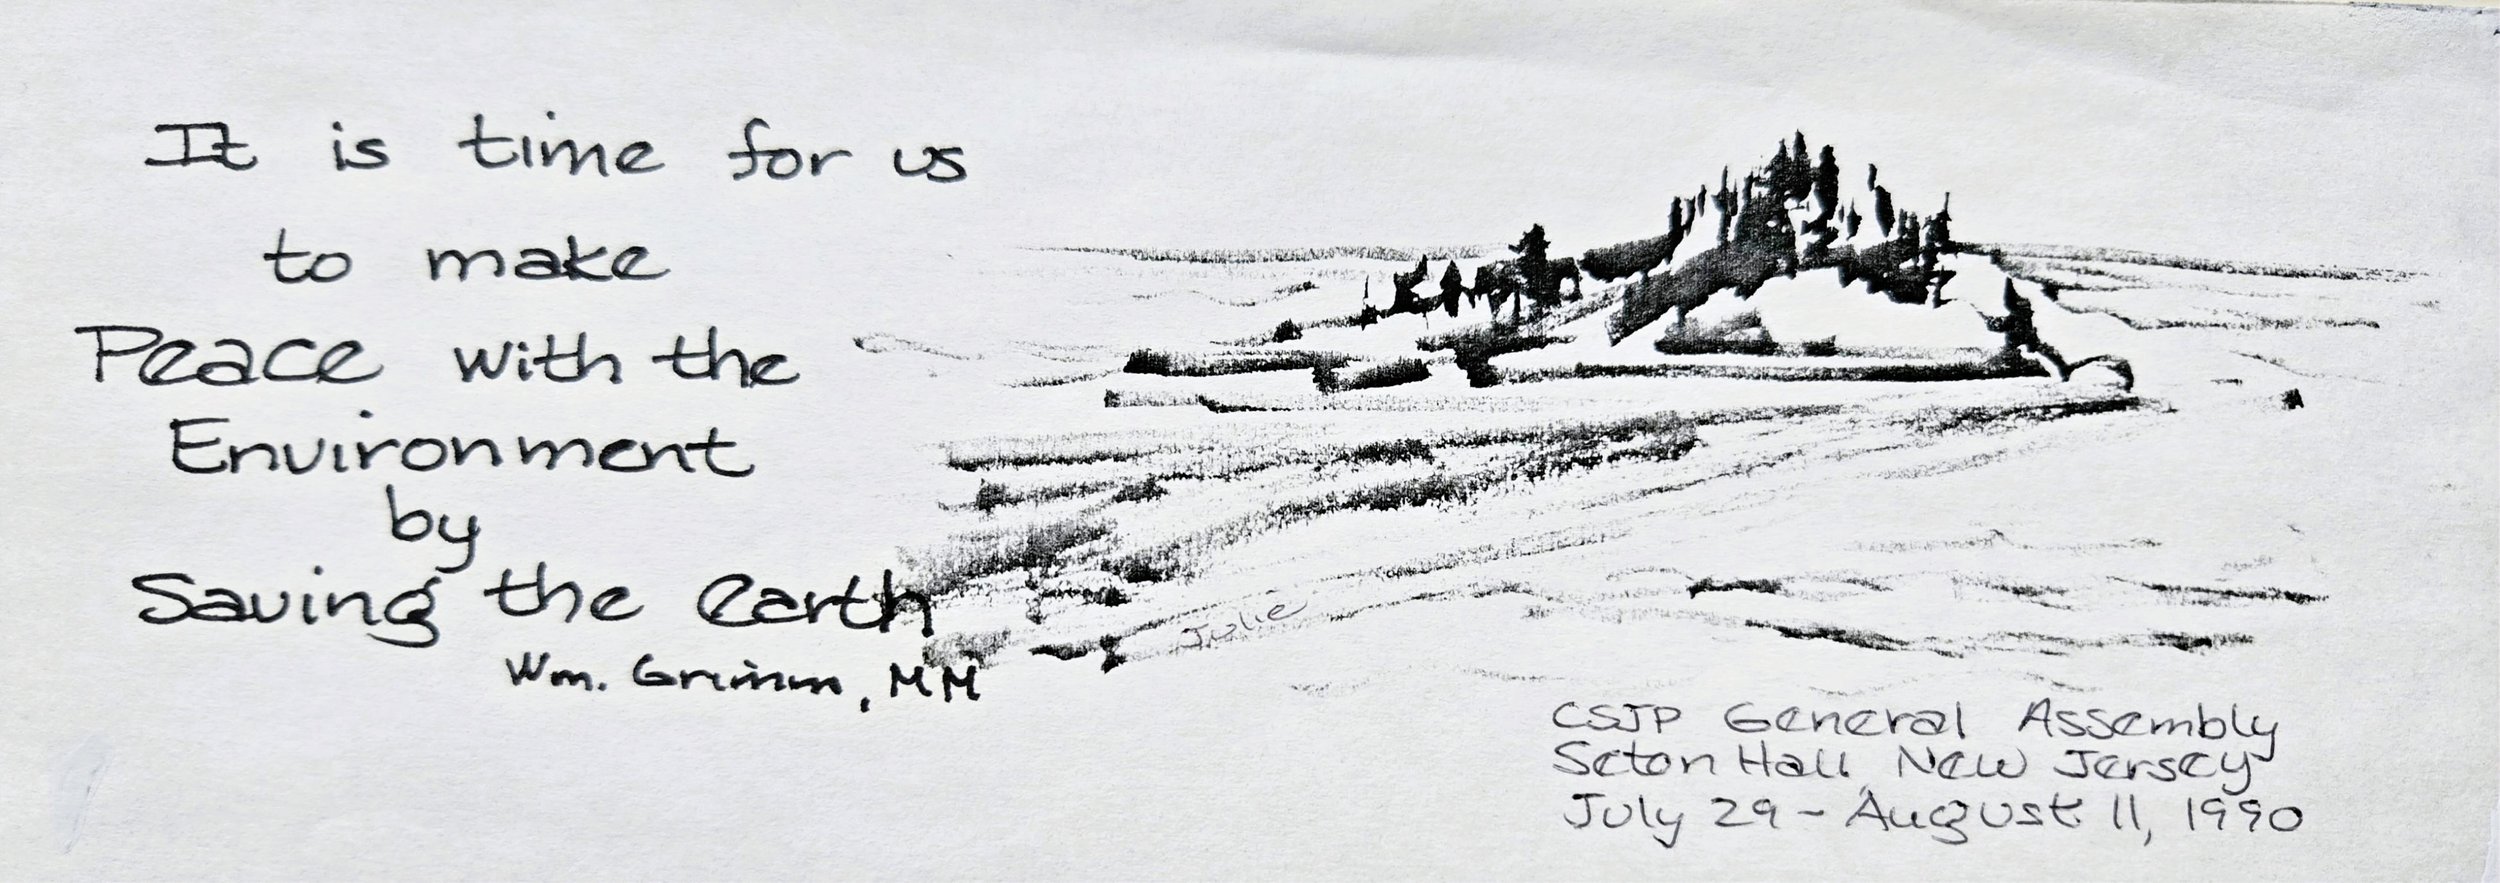 It is time for us
to make
Peace with the
Environment
by
Saving the earth
Wm. Grimm, MM
Julie
CSJP General Assembly
Seton Hall, New Jersey
July 29 - August 11, 1990